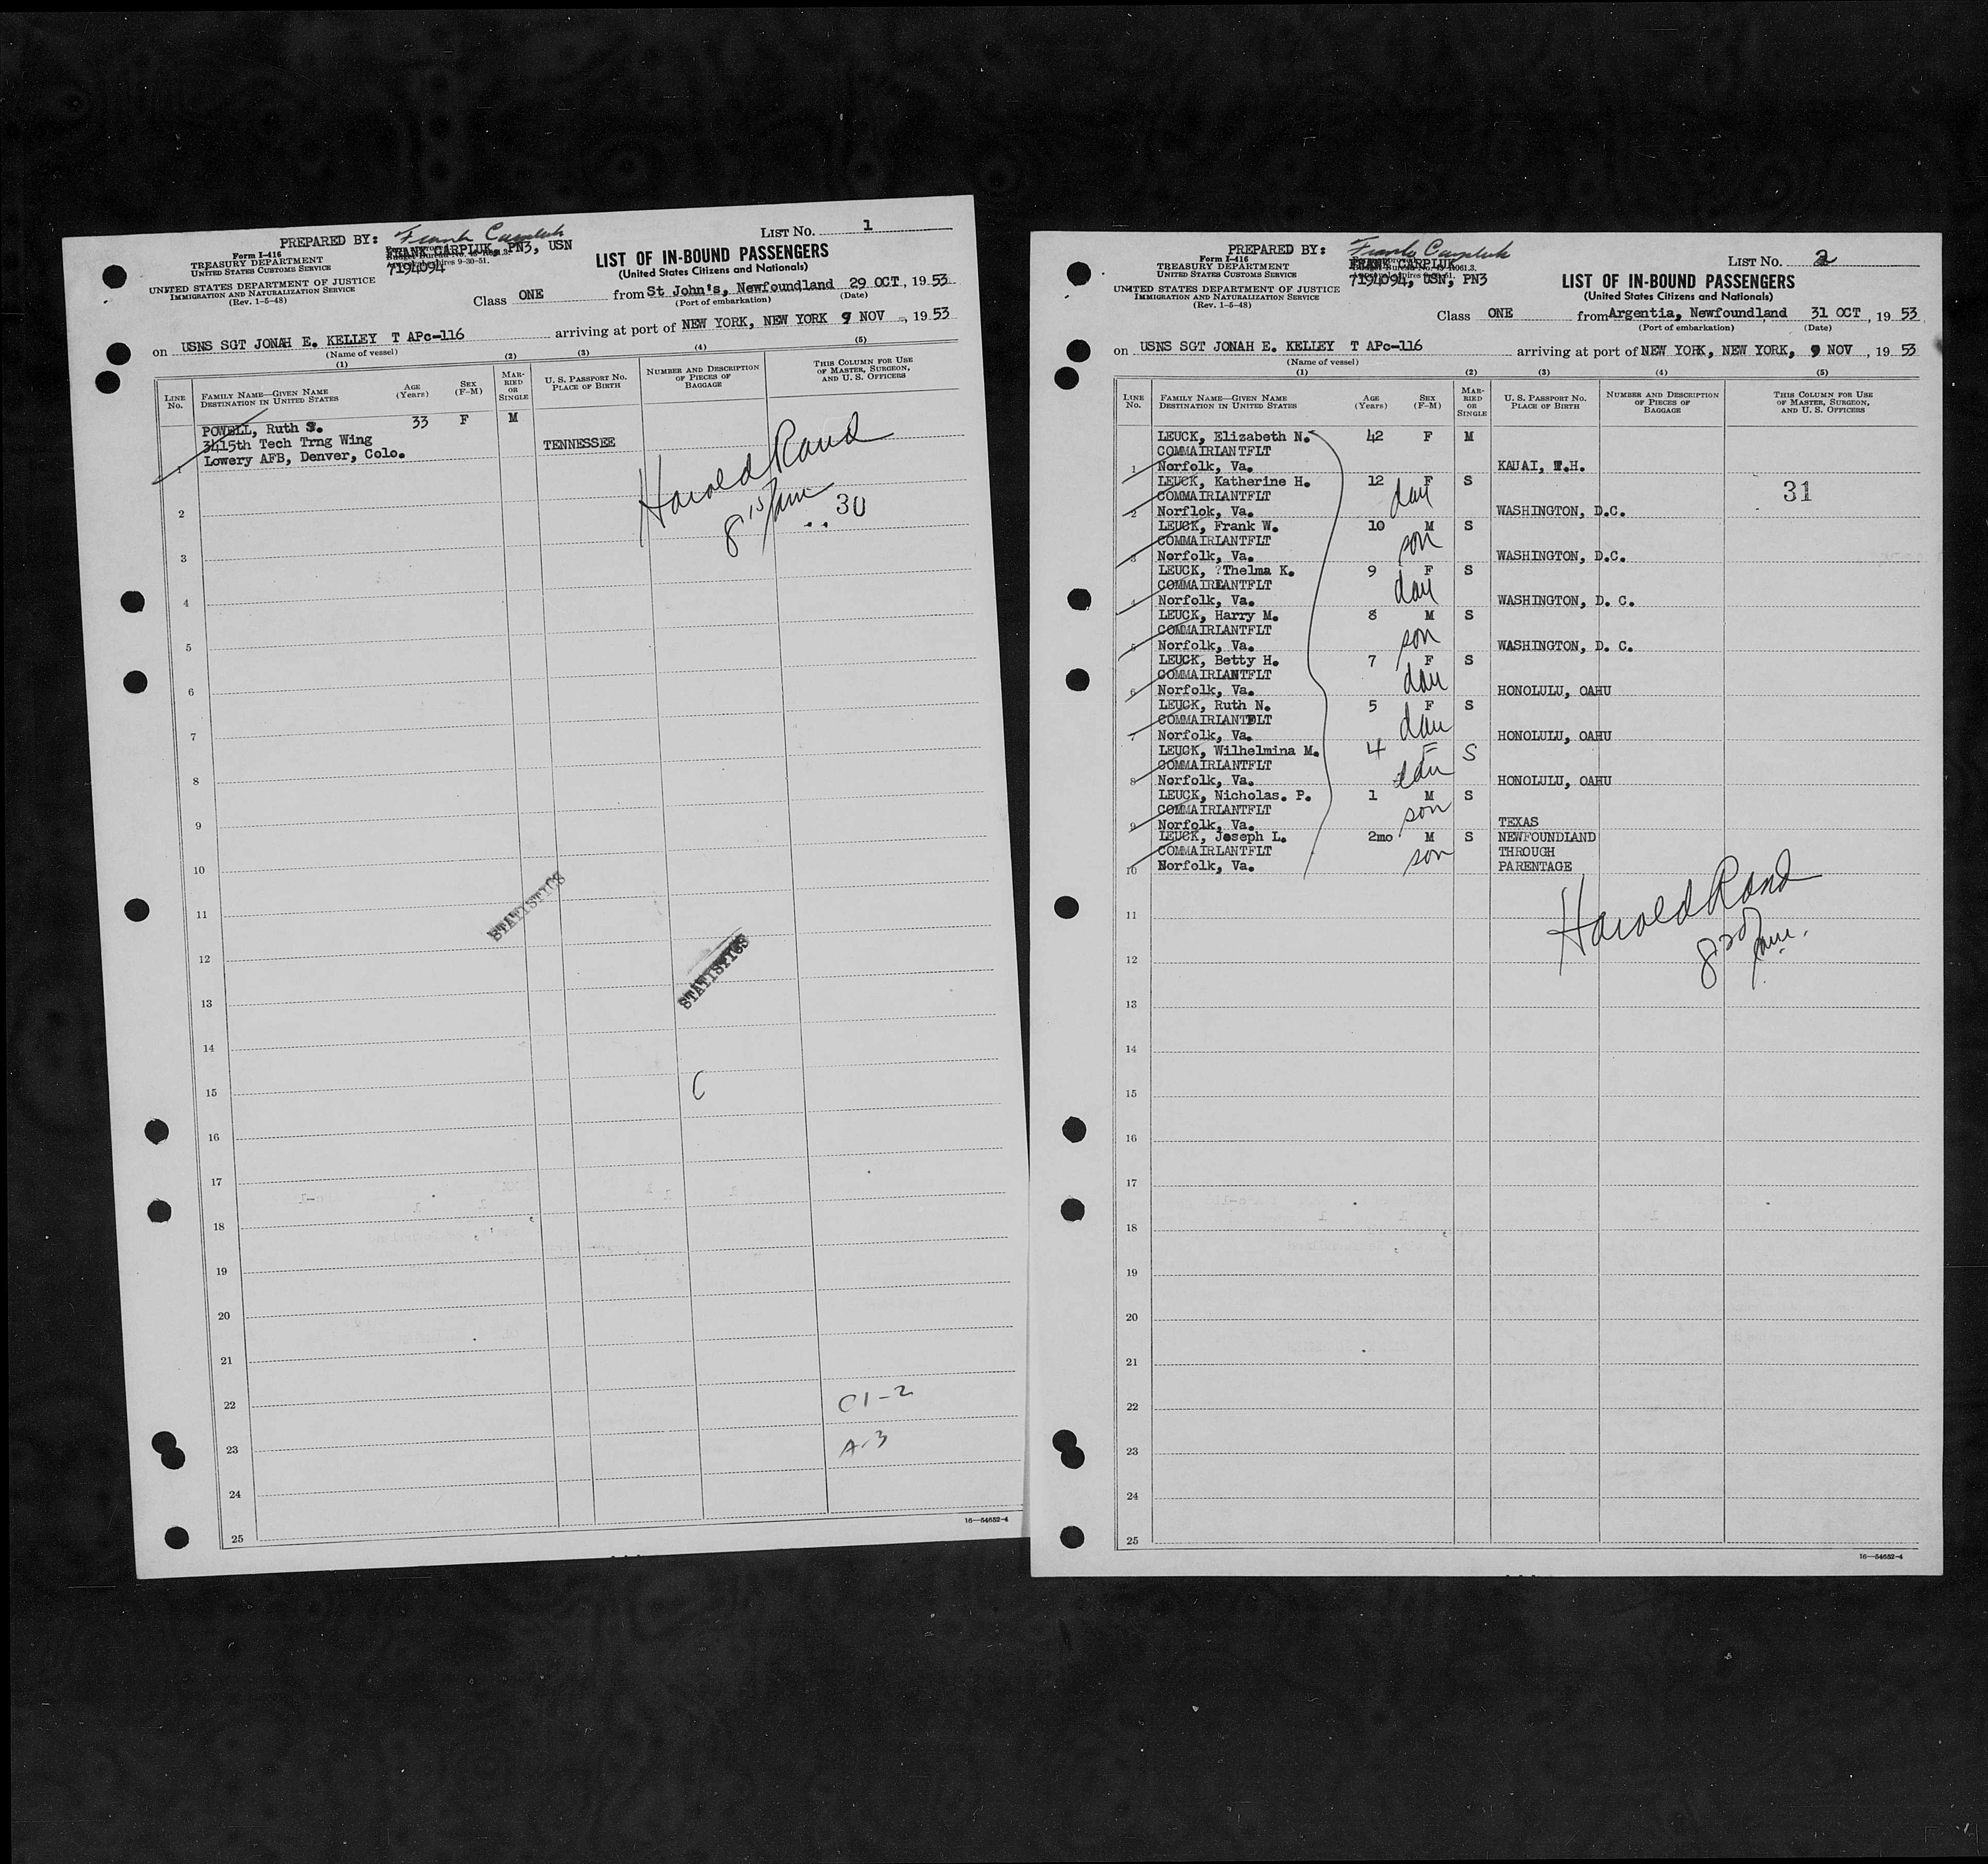 PREPARED BY: Frank Carpluk
FRANK CARPLUK, PN3, USN
7194094
LIST NO. 1
Form I-416
TREASURY DEPARTMENT
UNITED STATES CUSTOMS SERVICE
UNITED STATES DEPARTMENT OF JUSTICE
IMMIGRATION AND NATURALIZATION SERVICE
(Rev. 1-5-48)
LIST OF IN-BOUND PASSENGERS
(United States Citizens and Nationals)
Class ONE from St John's, Newfoundland 29 OCT, 1953
(Port of embarkation) (Date)
on USNS SGT JONAH E. KELLEY T APc-116 arriving at port of NEW YORK, NEW YORK 9 NOV, 1953
(Name of vessel)
(1) (2) (3) (4) (5)
LINE No. FAMILY NAME—GIVEN NAME DESTINATION IN UNITED STATES AGE (Years) SEX (F-M) MARRIED OR SINGLE U. S. PASSPORT NO. PLACE OF BIRTH NUMBER AND DESCRIPTION OF PIECES OF BAGGAGE THIS COLUMN FOR USE OF MASTER, SURGEON, AND U. S. OFFICERS
POWELL, Ruth 33 F M
3415th Tech Trng Wing TENNESSEE
1 Lowery AFB, Denver, Colo.
Harold Rand
8 15/am
30
2
3
4
5
6
7
8
9
10
STATISTICS
11
12
STATISTICS
13
14
15
C
16
17
18
19
20
21
22
C1-2
23
A-3
24
25
16—54652-4
PREPARED BY: Frank Carpluk
FRANK CARPLUK
7194094, USN, PN3
LIST NO. 2
Form I-416
TREASURY DEPARTMENT
UNITED STATES CUSTOMS SERVICE
UNITED STATES DEPARTMENT OF JUSTICE
IMMIGRATION AND NATURALIZATION SERVICE
(Rev. 1-5-48)
LIST OF IN-BOUND PASSENGERS
(United States Citizens and Nationals)
Class ONE from Argentia, Newfoundland 31 OCT, 1953
(Port of embarkation) (Date)
on USNS SGT JONAH E. KELLEY T APc-116 arriving at port of NEW YORK, NEW YORK, 9 NOV, 1953
(Name of vessel)
(1) (2) (3) (4) (5)
LINE No. FAMILY NAME—GIVEN NAME DESTINATION IN UNITED STATES AGE (Years) SEX (F-M) MARRIED OR SINGLE U. S. PASSPORT NO. PLACE OF BIRTH NUMBER AND DESCRIPTION OF PIECES OF BAGGAGE THIS COLUMN FOR USE OF MASTER, SURGEON, AND U. S. OFFICERS
LEUCK, Elizabeth N. 42 F M
COMMAIRLANTFLT
1 Norfolk, Va. KAUAI, T.H.
LEUCK, Katherine H. 12 F S
COMMAIRLANTFLT dau 31
2 Norflok, Va. WASHINGTON, D.C.
LEUCK, Frank W. 10 M S
COMMAIRLANTFLT son
3 Norfolk, Va. WASHINGTON, D.C.
LEUCK, ?Thelma K. 9 F S
COMMAIRLANTFLT dau
4 Norfolk, Va. WASHINGTON, D. C.
LEUCK, Harry M. 8 M S
COMMAIRLANTFLT son
5 Norfolk, Va. WASHINGTON, D. C.
LEUCK, Betty H. 7 F S
COMMAIRLANTFLT dau
6 Norfolk, Va. HONOLULU, OAHU
LEUCK, Ruth N. 5 F S
COMMAIRLANTFLT dau
7 Norfolk, Va. HONOLULU, OAHU
LEUCK, Wilhelmina M. 4 F S
COMMAIRLANTFLT dau
8 Norfolk, Va. HONOLULU, OAHU
LEUCK, Nicholas. P. 1 M S
COMMAIRLANTFLT son
9 Norfolk, Va. TEXAS
LEUCK, Joseph L. 2mo M S NEWFOUNDLAND
COMMAIRLANTFLT son THROUGH
10 Norfolk, Va. PARENTAGE
Harold Rand
11
8 20/am.
12
13
14
15
16
17
18
19
20
21
22
23
24
25
16—54652-4